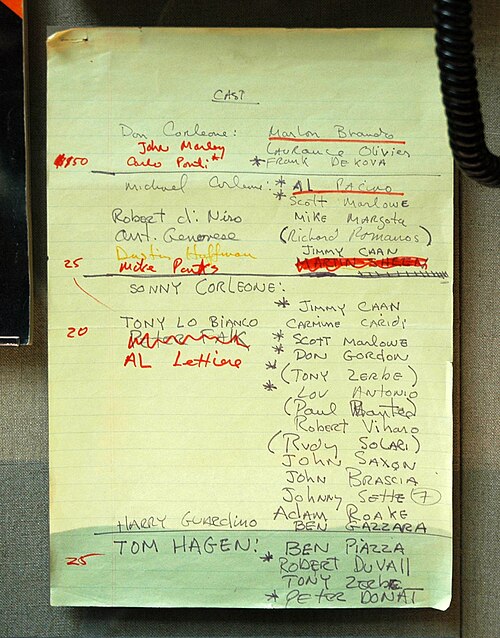 CAST
Don Corleone: Marlon Brando
John Marley Laurance Olivier
$150 Carlo Ponti* * FRANK DE KOVA
Michael Corleone: * AL PACINO
* Scott Marlowe
Robert di Niro MIKE MARGOTA
Ant. Genovese (Richard Romanos)
Dustin Hoffman JIMMY CAAN
25 Mike Parks MARTIN SHEEN
SONNY CORLEONE:
* JIMMY CAAN
TONY LO BIANCO CARMINE CARIDI
20 PETER FALK * SCOTT MARLOWE
AL Lettiere * DON GORDON
* (TONY ZERBE)
* LOU ANTONIO
(Paul )
Robert Viharo
(RUDY SOLARI)
JOHN SAXON
JOHN BRASCIA
Johnny SETTE (7)
Adam ROAKE
HARRY GUARDINO BEN GAZZARA
TOM HAGEN: BEN PIAZZA
25 * ROBERT DUVAll
TONY ZERBE
* PETER DONAT